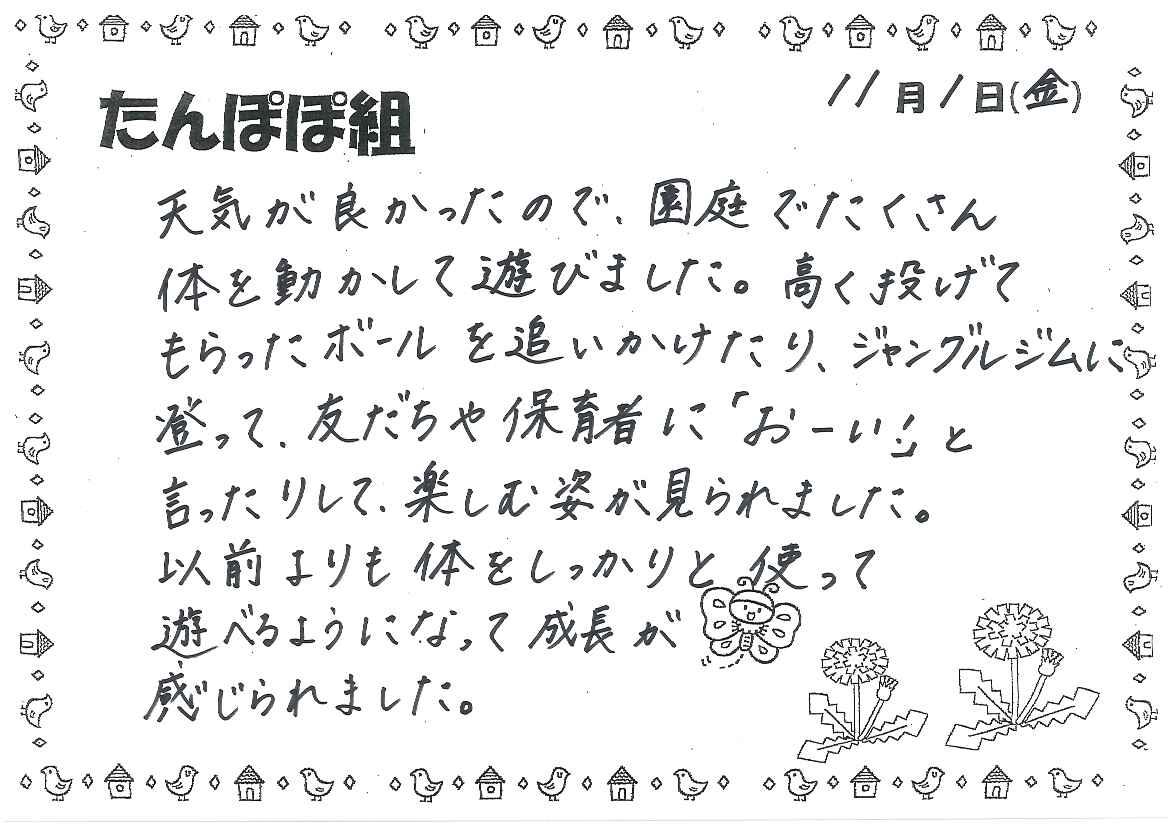 たんぽぽ組
11月1日(金)
天気が良かったので、園庭でたくさん
体を動かして遊びました。高く投げて
もらったボールを追いかけたり、ジャングルジムに
登って、友だちや保育者に「おーい!」と
言ったりして、楽しむ姿が見られました。
以前よりも体をしっかりと使って
遊べるようになって成長が
感じられました。